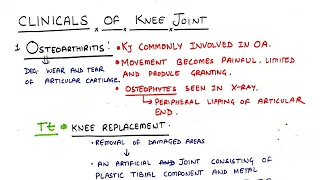 CLINICALS OF KNEE JOINT
1 OSTEOARTHRITIS: • KJ COMMONLY INVOLVED IN OA.
DEG. WEAR AND TEAR OF ARTICULAR CARTILAGE.
• MOVEMENT BECOMES PAINFUL, LIMITED
AND PRODUCE GRANTING.
• OSTEOPHYTES SEEN IN X-RAY.
→ PERIPHERAL LIPPING OF ARTICULAR
END.
Tt • KNEE REPLACEMENT.
- REMOVAL OF DAMAGED AREAS
→ AN ARTIFICIAL AND JOINT CONSISTING OF
PLASTIC TIBIAL COMPONENT AND METAL